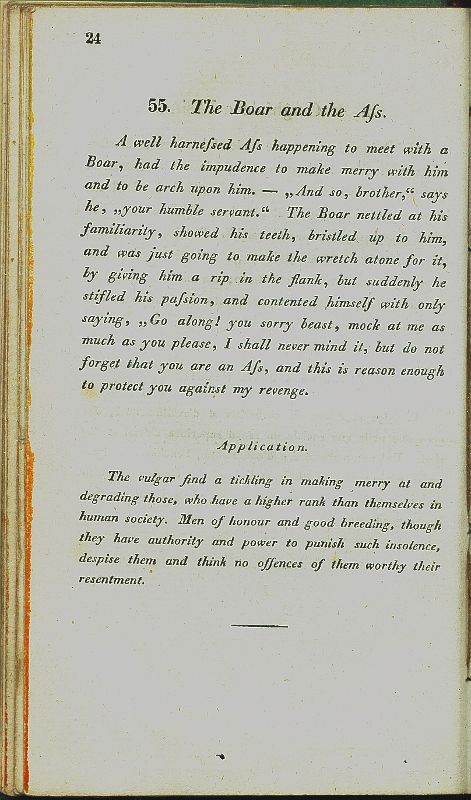 24
55. The Boar and the Aſs.
A well harneſsed Aſs happening to meet with a
Boar, had the impudence to make merry with him
and to be arch upon him. — „And so, brother,“ says
he, „your humble servant.“ The Boar nettled at his
familiarity, showed his teeth, bristled up to him,
and was just going to make the wretch atone for it,
by giving him a rip in the flank, but suddenly he
stifled his paſsion, and contented himself with only
saying, „Go along! you sorry beast, mock at me as
much as you please, I shall never mind it, but do not
forget that you are an Aſs, and this is reason enough
to protect you against my revenge.
Application.
The vulgar find a tickling in making merry at and
degrading those, who have a higher rank than themselves in
human society. Men of honour and good breeding, though
they have authority and power to punish such insolence,
despise them and think no offences of them worthy their
resentment.